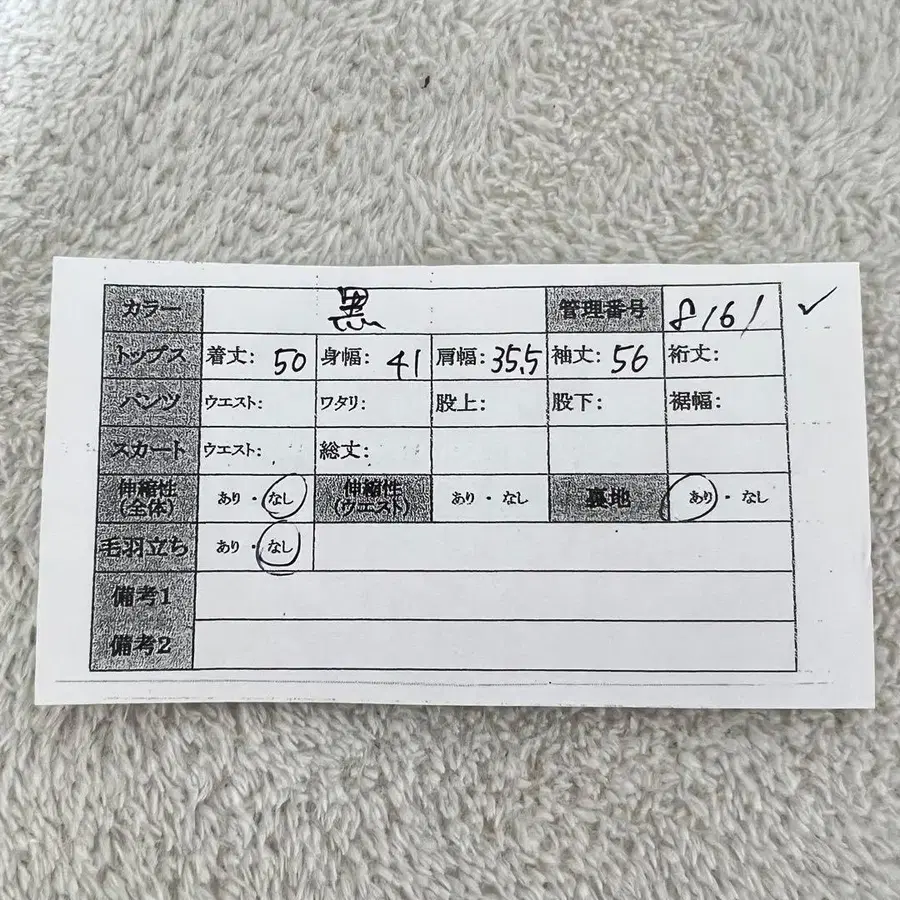 カラー 黒 管理番号 8161 ✓
トップス 着丈: 50 身幅: 41 肩幅: 35.5 袖丈: 56 裄丈:
パンツ ウエスト: ワタリ: 股上: 股下: 裾幅:
スカート ウエスト: 総丈:
伸縮性 (全体) あり・なし 伸縮性 (ウエスト) あり・なし 裏地 あり・なし
毛羽立ち あり・なし
備考1
備考2